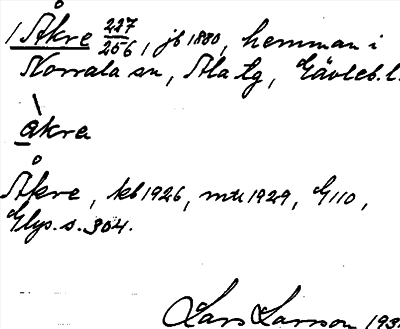 1 Åkre 227/256, jb 1880, hemman i
Norrala sn, Ala tg, Gävleb. l.
àkra
Åkre, kb 1926, mtl 1929, G110,
Glys. s. 304.
Lars Larson 193